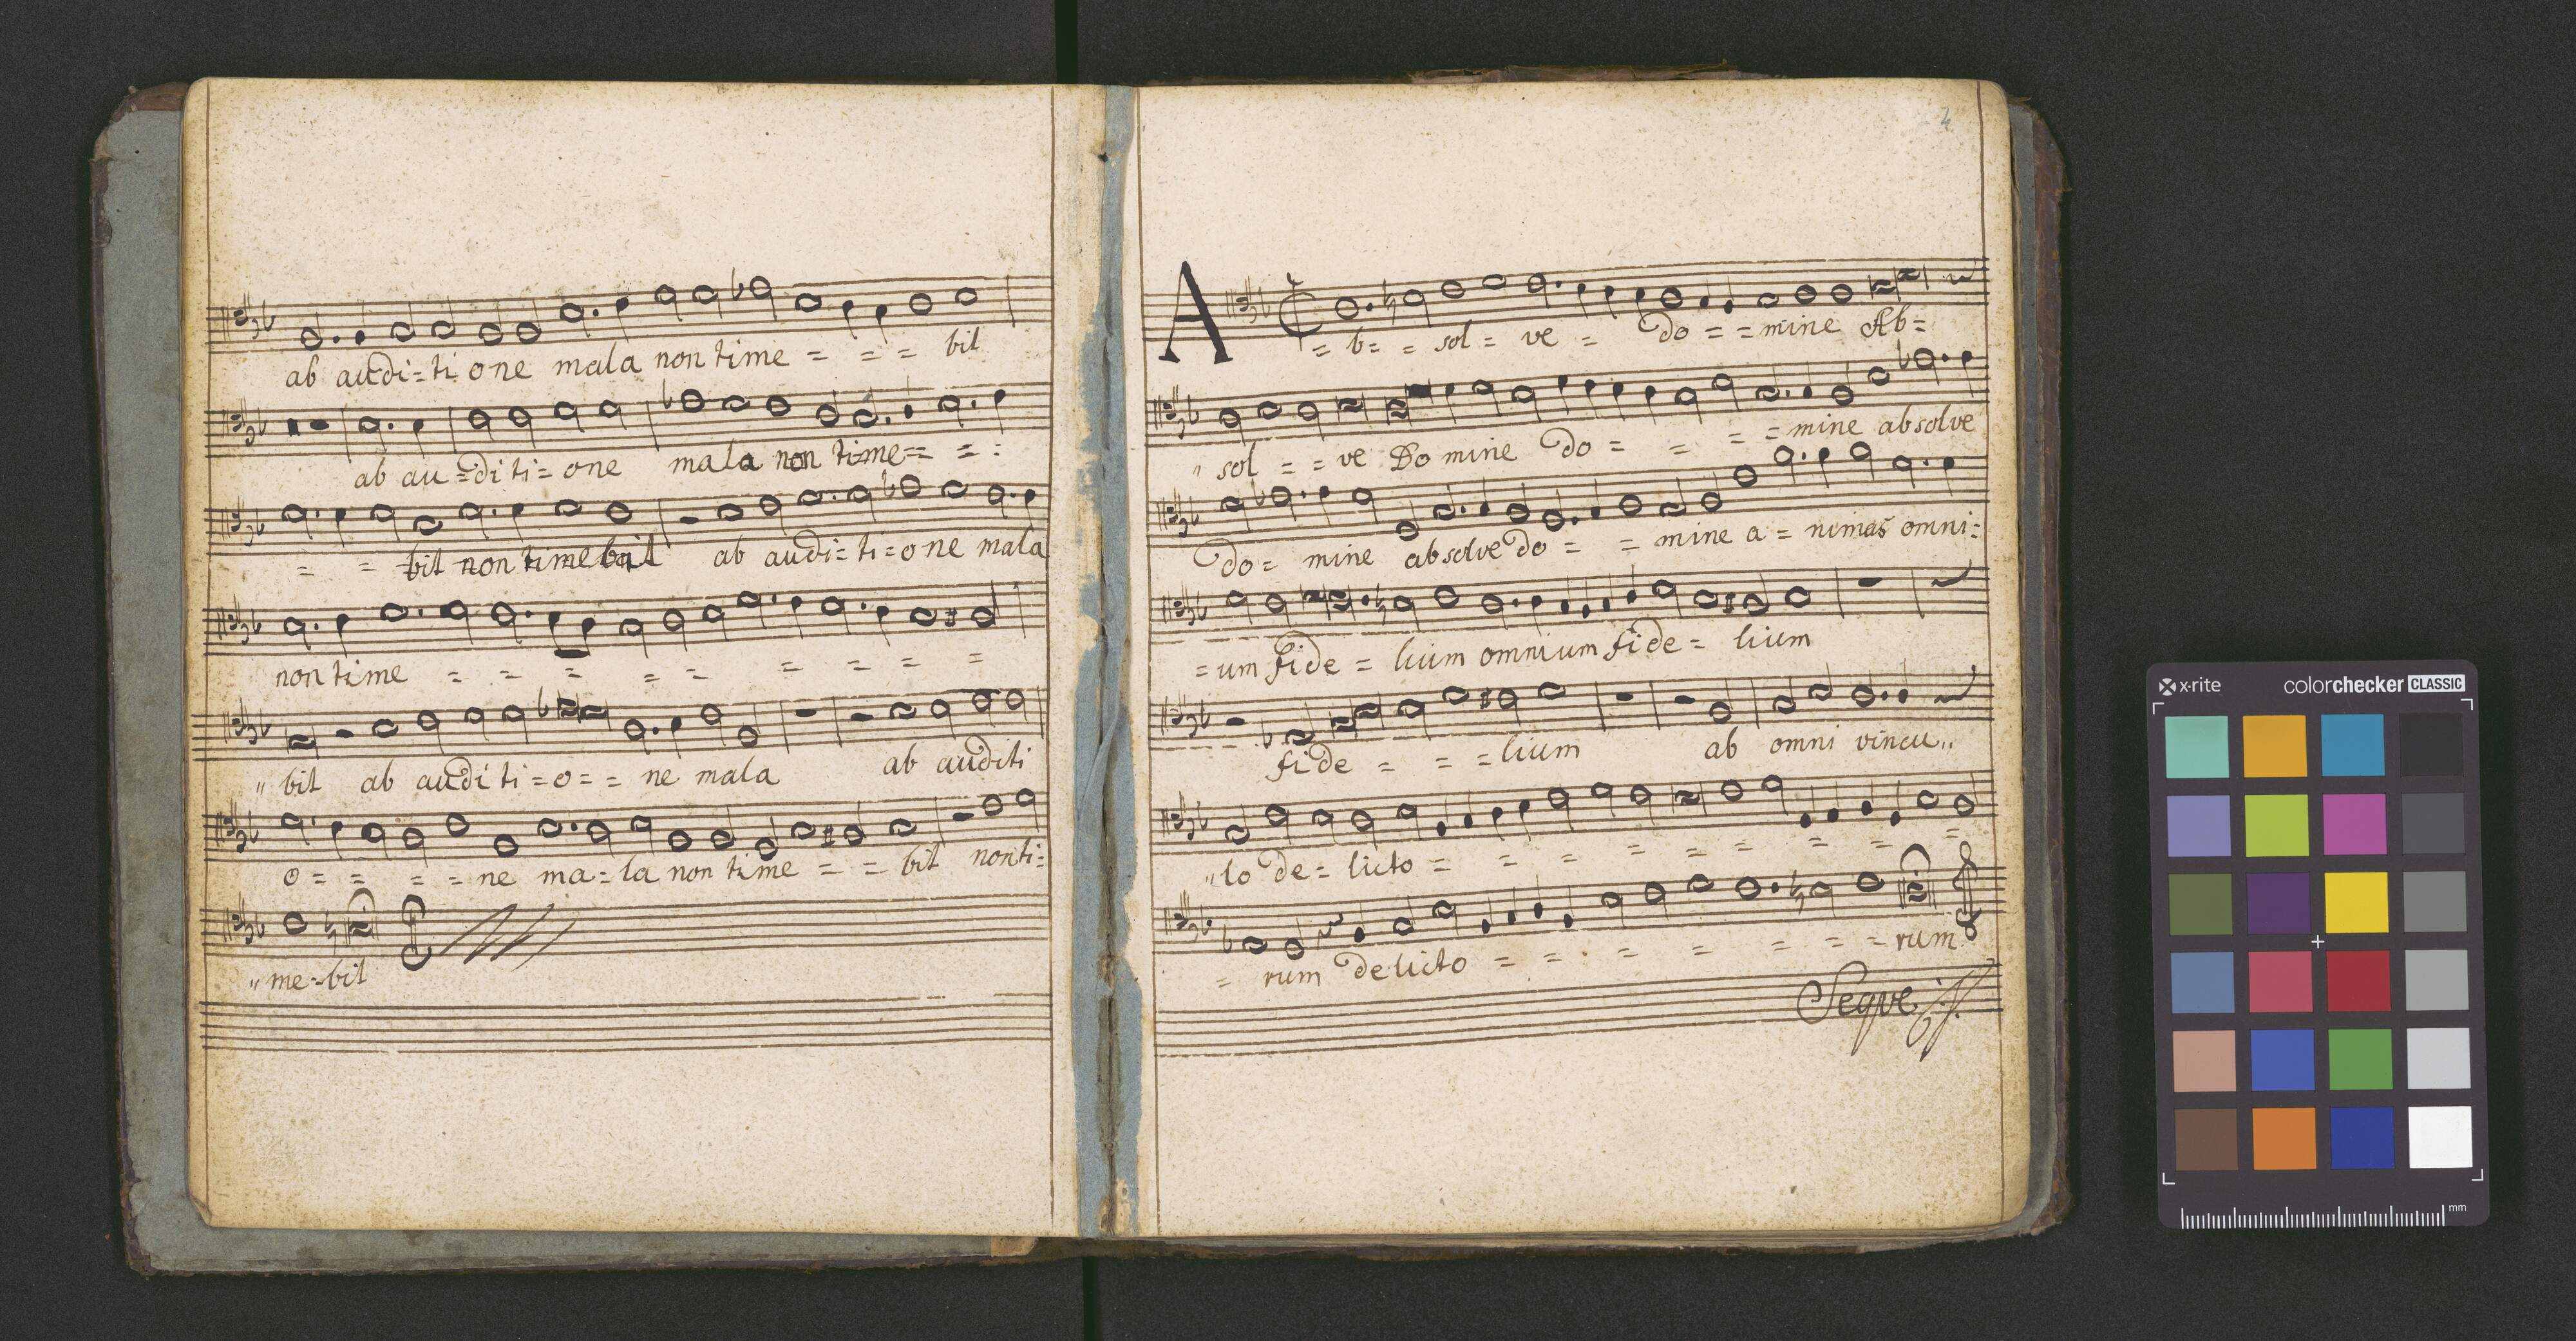 ab audi=ti one mala non time = = = bit
ab au =di ti= one mala non time== = =
= = bit non time bit ab audi= ti=o ne mala
non ti me = = = = = = = = =
" bit ab audi ti =o= = ne mala ab auditi
o= = = = ne ma=la non time = = bit non ti=
" me=bit
4
A
= b= = sol = ve = do = = mine Ab=
" sol = = ve Do mine do = = = = mine absolve
do = mine absolve do = = mine a = nimas omni=
= um fide = lium omnium fide = lium
fide = = = lium ab omni vincu"
" lo de = licto = = = = = = = = =
= rum delicto = = = = = = = rum
Seqve
x·rite colorchecker CLASSIC
mm